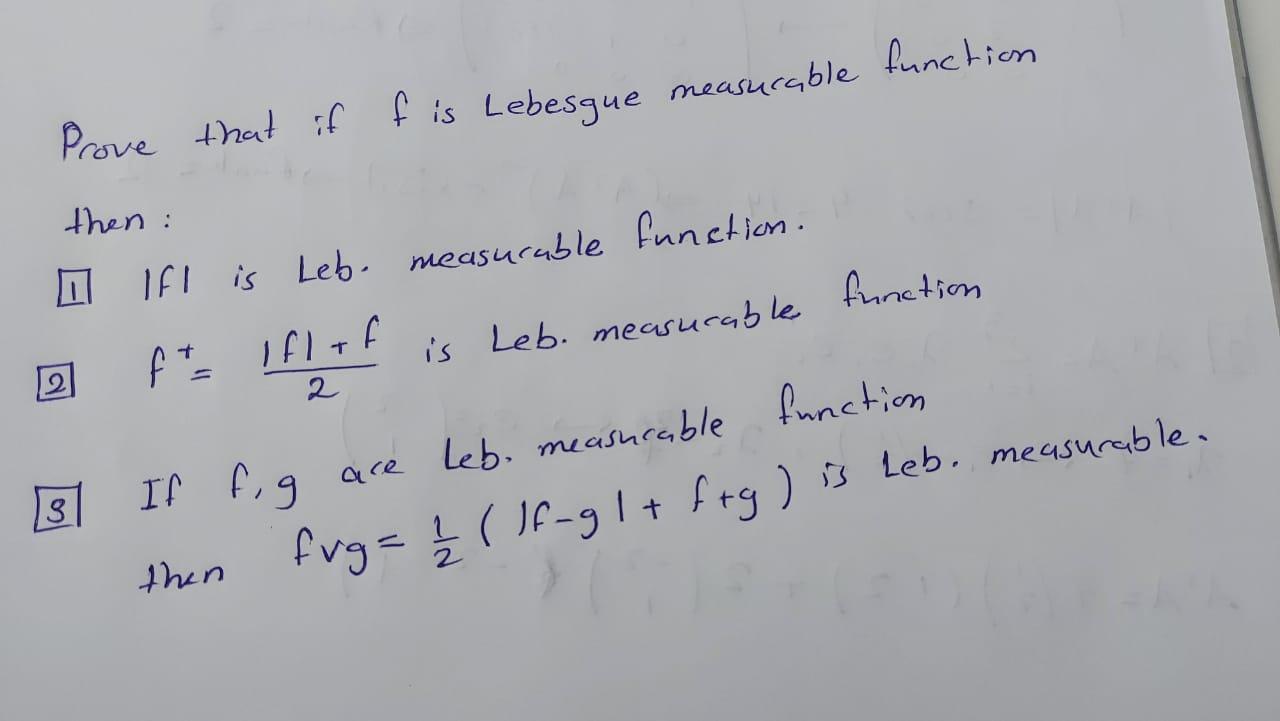 Prove that if f is Lebesgue measurable function
then :
1 |f| is Leb. measurable function.
2 f⁺ = |f| + f / 2 is Leb. measurable function
3 If f, g are Leb. measurable function
then f∨g = 1/2 ( |f-g| + f+g ) is Leb. measurable.